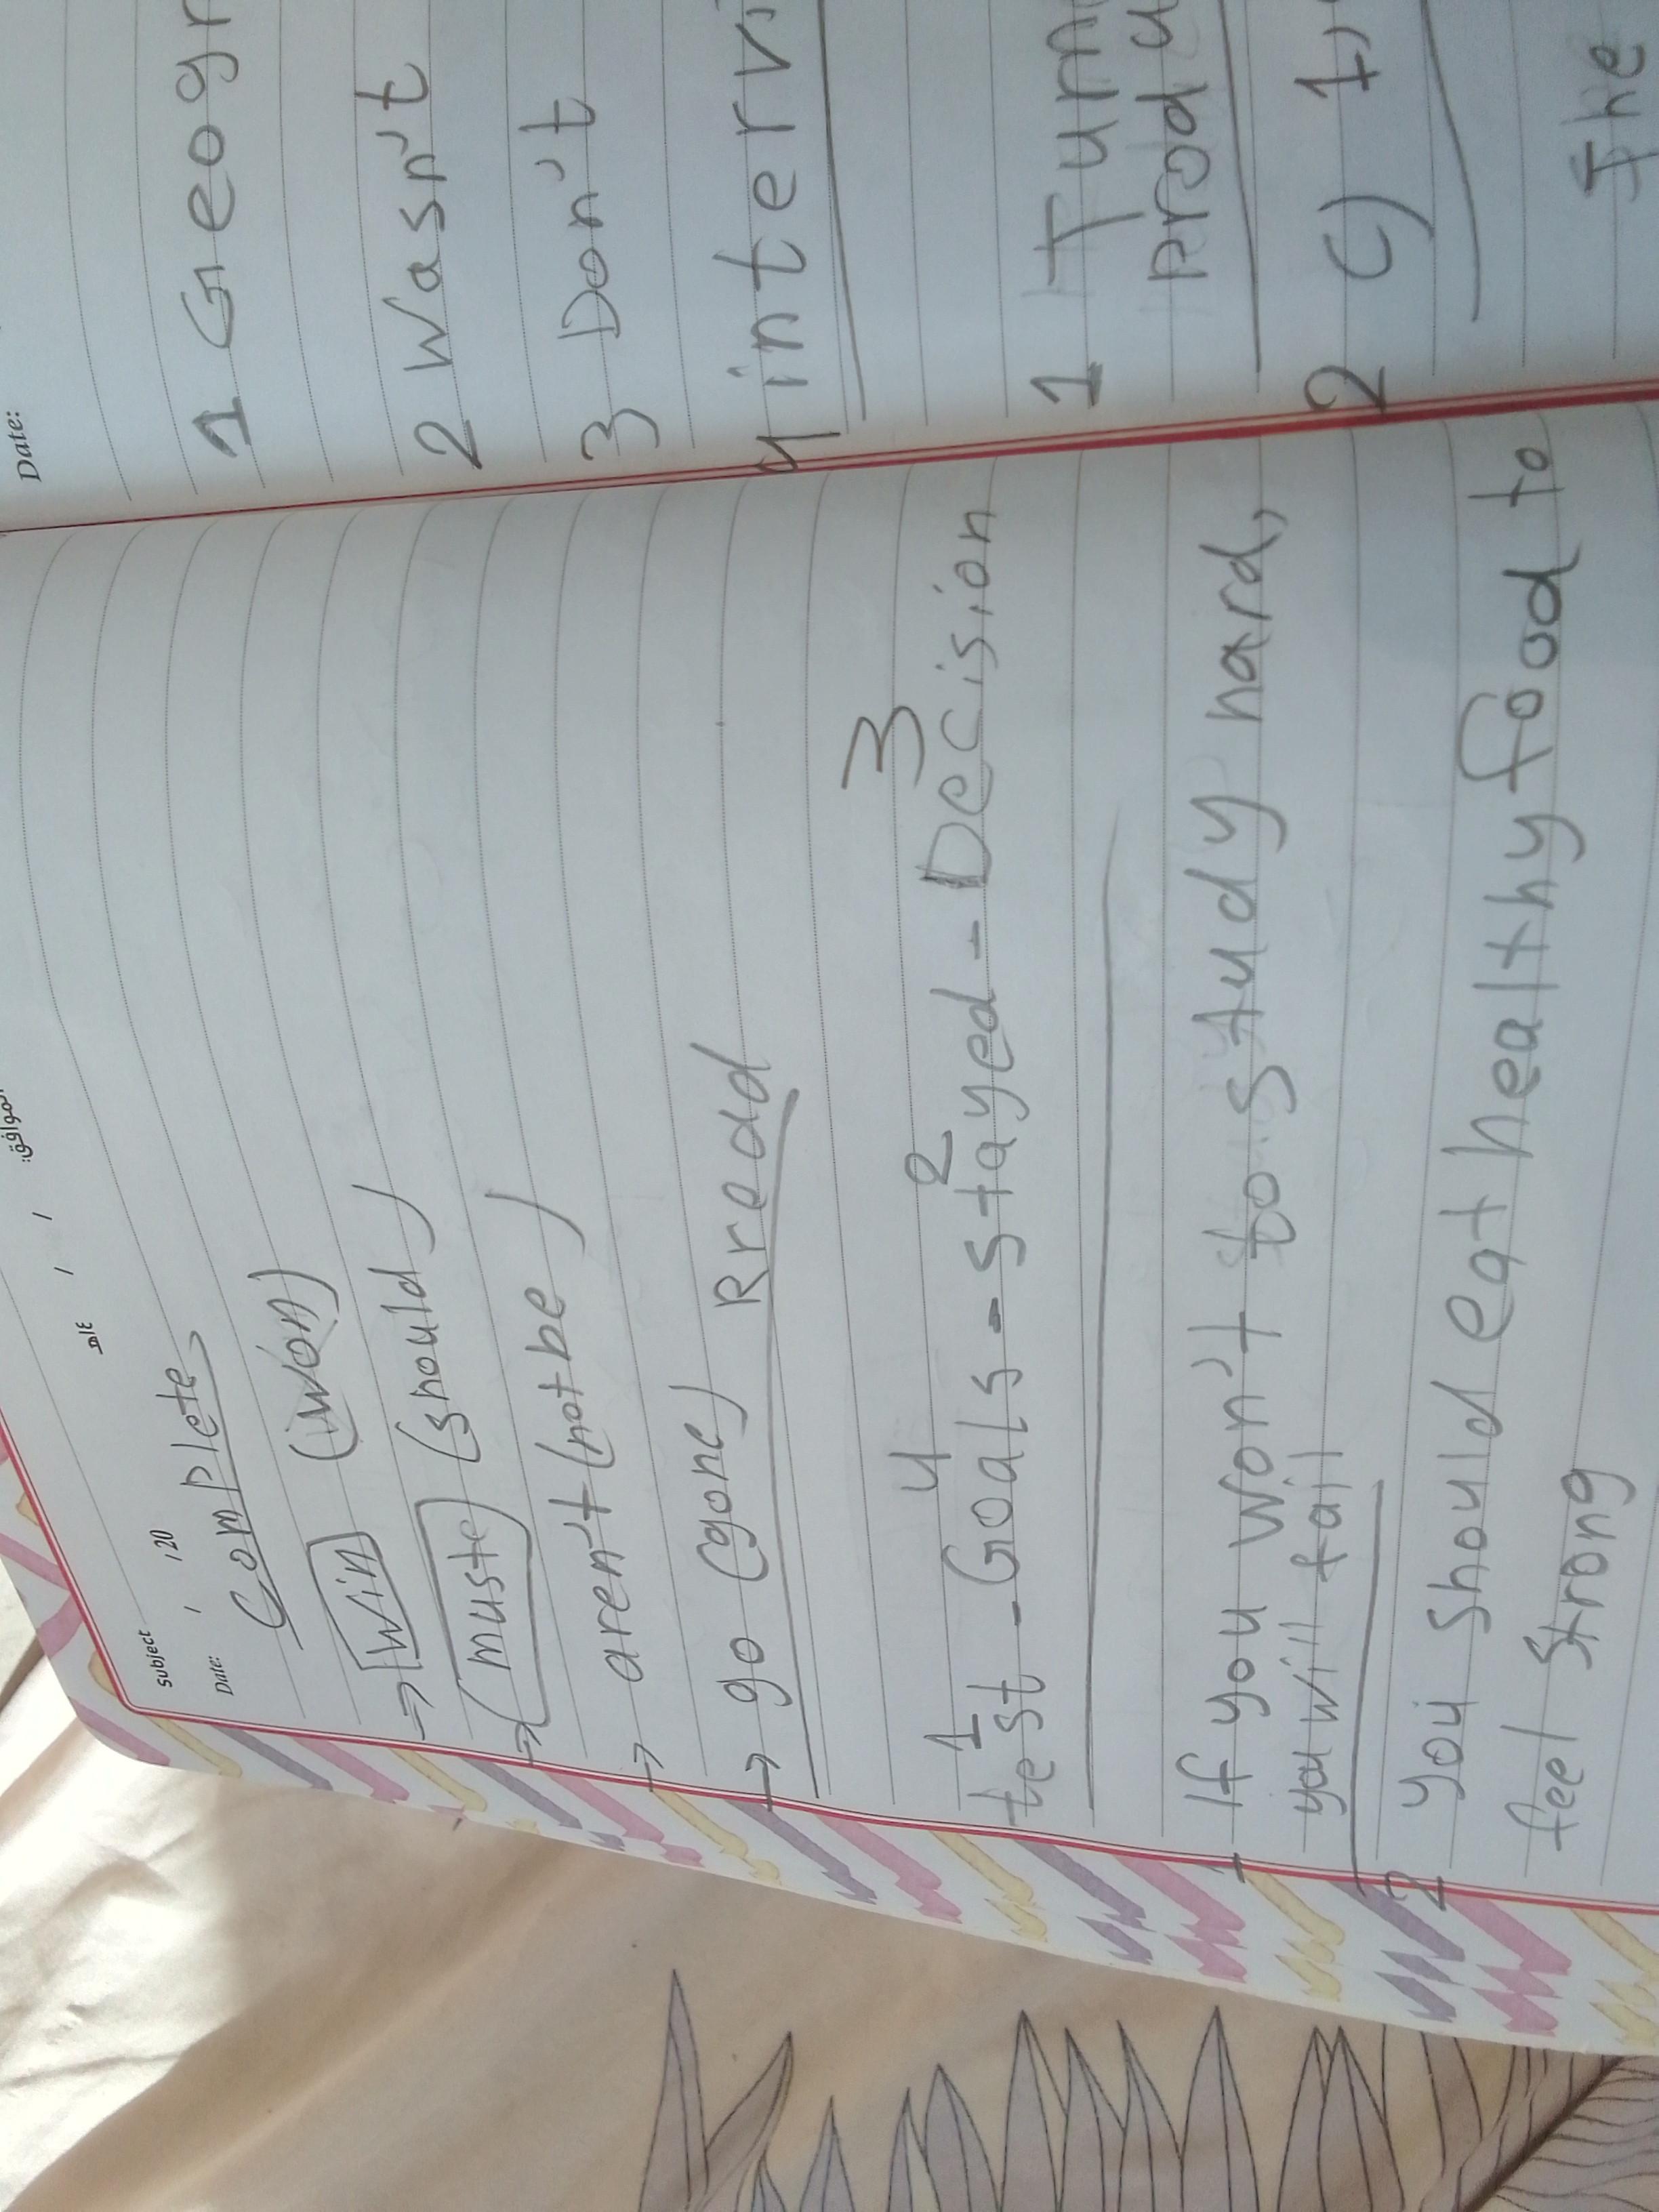 الموافق:
/ / ١٤هـ
Subject
Date: / / 20
Complete
→ Win (won)
→ (muste) (should)
→ aren't (not be)
→ go (gone) Rread
1 4 2 3
test - Goals - stayed - Decision
1 If you won't to study hard,
you will fail
2 You should eat healthy food to
feel strong
Date:
1 Geogr
2 Wasn't
3 Don't
4 intervi
1
2 c)
The